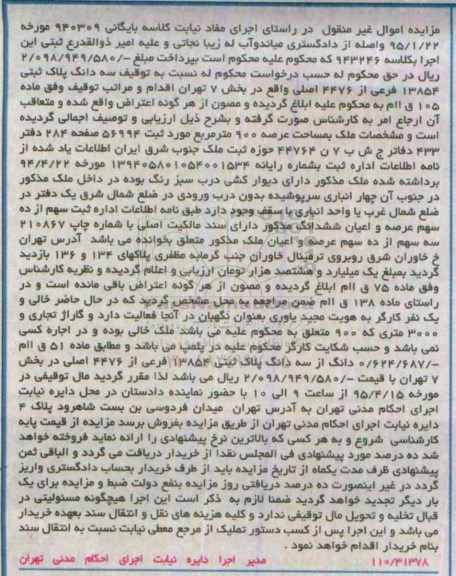 مزایده اموال غیر منقول در راستای اجرای مفاد نیابت کلاسه بایگانی ۹۴۰۳۰۹ مورخه
۹۵/۱/۲۲ واصله از دادگستری میاندوآب له زیبا نجاتی و علیه امیر ذوالقدرع ثبتی این
اجرا بکلاسه ۹۴۳۲۴۶ که محکوم علیه محکوم است بپرداخت مبلغ -/۲/۰۹۸/۹۴۹/۵۸۰
ریال در حق محکوم له حسب درخواست محکوم له نسبت به توقیف سه دانگ پلاک ثبتی
۱۳۸۵۴ فرعی از ۴۴۷۶ اصلی واقع در بخش ۷ تهران اقدام و مراتب توقیف وفق ماده
۱۰۵ ق اام به محکوم علیه ابلاغ گردیده و مصون از هر گونه اعتراض واقع شده و متعاقب
آن ارجاع امر به کارشناس صورت گرفته و بشرح ذیل ارزیابی و توصیف اجمالی گردیده
است و مشخصات ملک بمساحت عرصه ۹۰۰ مترمربع مورد ثبت ۵۶۹۹۴ صفحه ۲۸۴ دفتر
۴۳۳ دفاتر ج ش ب ۷ ن ۴۴۷۶۴ حوزه ثبت ملک جنوب شرق ایران اطلاعات یاد شده از
نامه اطلاعات اداره ثبت بشماره رایانه ۱۳۹۴۰۵۸۰۱۰۵۴۰۰۱۵۳۴ مورخه ۹۴/۴/۲۲
برداشته شده ملک مذکور دارای دیوار کشی درب سبز رنگ بوده در داخل ملک مذکور
در جنوب آن چهار انباری سرپوشیده بدون درب ورودی در ضلع شمال شرق یک دفتر در
ضلع شمال غرب یا واحد انباری با سقف وجود دارد طبق نامه اطلاعات اداره ثبت سهم از ده
سهم عرصه و اعیان ششدانگ مذکور دارای سند مالکیت اصلی با شماره چاپ ۲۱۰۸۶۷
سه سهم از ده سهم عرصه و اعیان ملک مذکور متعلق بخوانده می باشد آدرس تهران
خ خاوران شرق روبروی ترمینال خاوران جنب گرمابه مظفری پلاکهای ۱۳۴ و ۱۳۶ بازدید
گردید بمبلغ یک میلیارد و هشتصد هزار تومان ارزیابی و اعلام گردیده و نظریه کارشناس
وفق ماده ۷۵ ق اام ابلاغ گردیده و مصون از هر گونه اعتراض باقی مانده است و در
راستای ماده ۱۳۸ ق اام ضمن مراجعه به محل مشخص گردید که در حال حاضر خالی و
یک نفر کارگر به هویت مجید یاوری بعنوان نگهبان در آنجا فعالیت دارد و گاراژ تجاری و
۳۰۰۰ متری که ۹۰۰ متعلق به محکوم علیه می باشد ملک خالی بوده و در اجاره کسی
نمی باشد و حسب شکایت کارگر محکوم علیه در پلمپ می باشد و مطابق ماده ۵۱ ق اام
-/۰/۶۲۴/۶۸۷ دانگ از سه دانگ پلاک ثبتی ۱۳۸۵۴ فرعی از ۴۴۷۶ اصلی در بخش
۷ تهران با قیمت -/۲/۰۹۸/۹۴۹/۵۸۰ ریال می باشد لذا مقرر گردید مال توقیفی در
مورخه ۹۵/۴/۱۵ از ساعت ۹ الی ۱۰ با حضور نماینده دادستان در محل دایره نیابت
اجرای احکام مدنی تهران به آدرس تهران میدان فردوسی بن بست شاهرود پلاک ۴
دایره نیابت اجرای احکام مدنی تهران از طریق مزایده بفروش برسد مزایده از قیمت پایه
کارشناسی شروع و به هر کسی که بالاترین نرخ پیشنهادی را ارائه نماید فروخته خواهد
شد ده درصد مورد پیشنهادی فی المجلس نقدا از خریدار دریافت می گردد و الباقی ثمن
پیشنهادی ظرف مدت یکماه از تاریخ مزایده باید از طرف خریدار بحساب دادگستری واریز
گردد در غیر اینصورت ده درصد دریافتی روز مزایده بنفع دولت ضبط و مزایده برای یک
بار دیگر تجدید خواهد گردید ضمنا لازم به ذکر است این اجرا هیچگونه مسئولیتی در
قبال تخلیه و تحویل مال توقیفی ندارد و کلیه هزینه های نقل و انتقال سند بعهده خریدار
می باشد و این اجرا پس از کسب دستور تملیک از مرجع معطی نیابت نسبت به انتقال سند
بنام خریدار اقدام خواهد نمود .
۱۱۰/۳۱۳۷۸ مدیر اجرا دایره نیابت اجرای احکام مدنی تهران